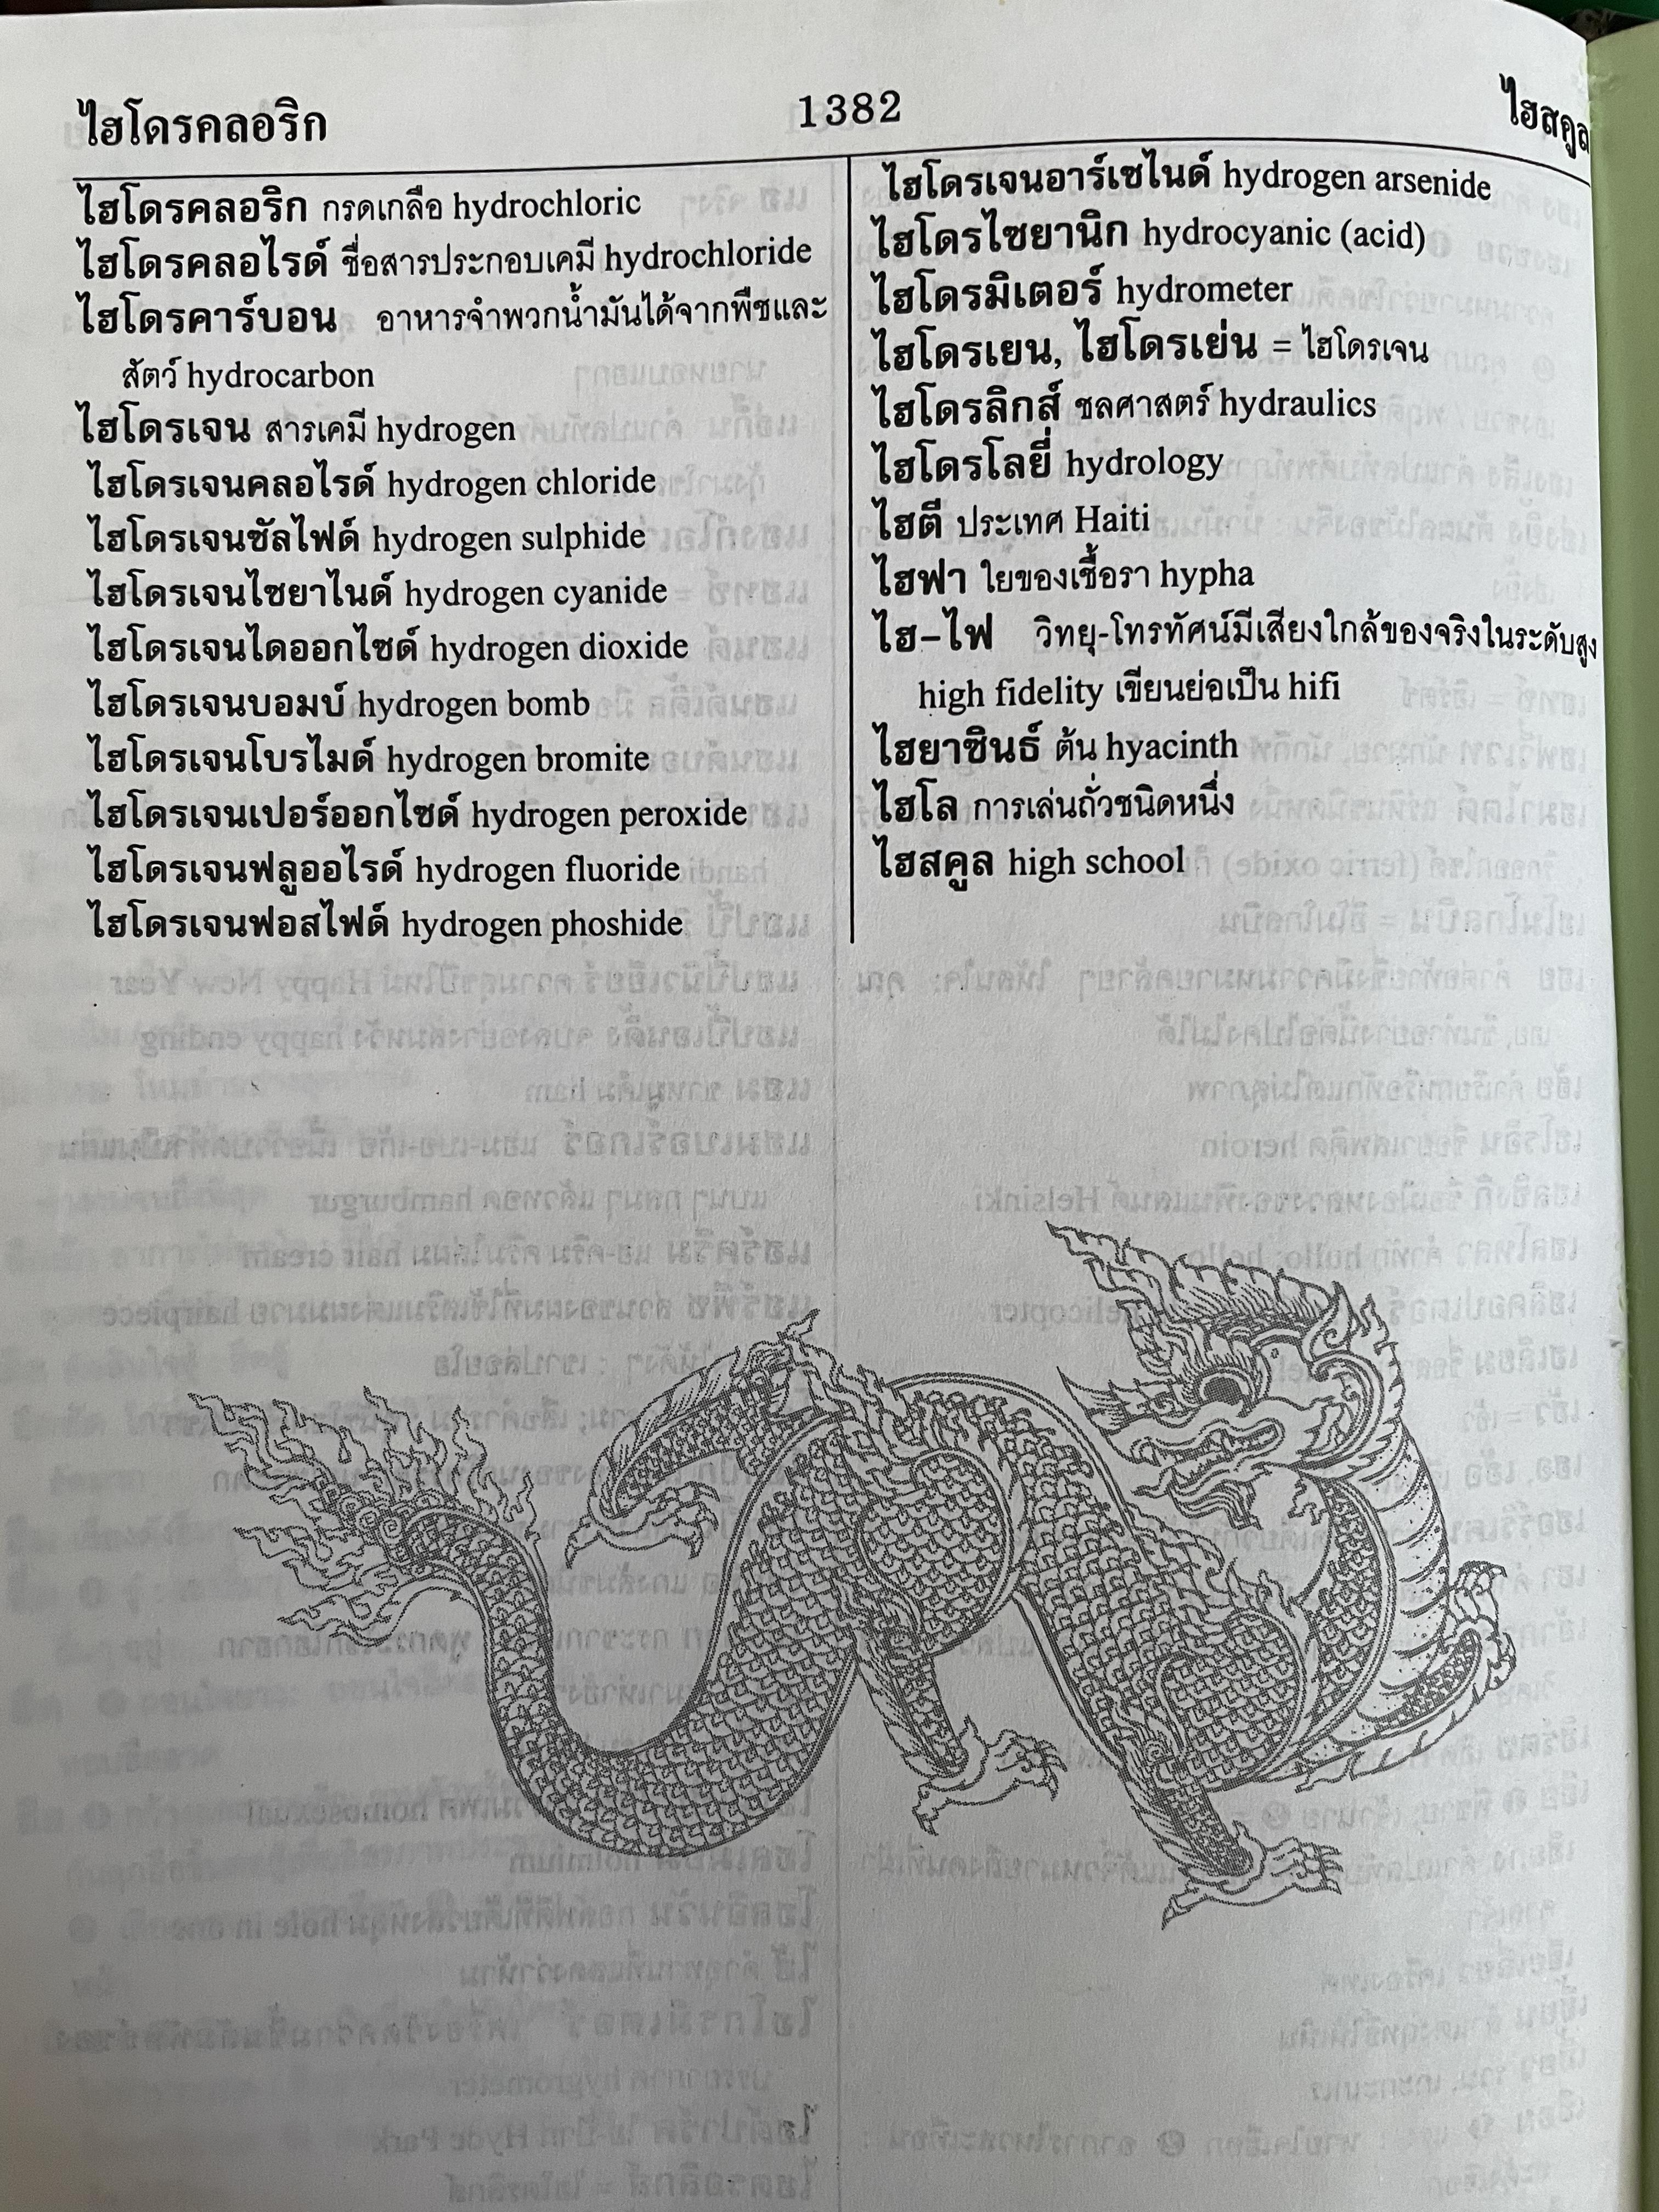 ไฮโดรคลอริก 1382 ไฮสกูล
ไฮโดรคลอริก กรดเกลือ hydrochloric
ไฮโดรคลอไรด์ ชื่อสารประกอบเคมี hydrochloride
ไฮโดรคาร์บอน อาหารจำพวกน้ำมันได้จากพืชและ
สัตว์ hydrocarbon
ไฮโดรเจน สารเคมี hydrogen
ไฮโดรเจนคลอไรด์ hydrogen chloride
ไฮโดรเจนซัลไฟด์ hydrogen sulphide
ไฮโดรเจนไซยาไนด์ hydrogen cyanide
ไฮโดรเจนไดออกไซด์ hydrogen dioxide
ไฮโดรเจนบอมบ์ hydrogen bomb
ไฮโดรเจนโบรไมด์ hydrogen bromite
ไฮโดรเจนเปอร์ออกไซด์ hydrogen peroxide
ไฮโดรเจนฟลูออไรด์ hydrogen fluoride
ไฮโดรเจนฟอสไฟด์ hydrogen phoshide
ไฮโดรเจนอาร์เซไนด์ hydrogen arsenide
ไฮโดรไซยานิก hydrocyanic (acid)
ไฮโดรมิเตอร์ hydrometer
ไฮโดรเยน, ไฮโดรเย่น = ไฮโดรเจน
ไฮโดรลิกส์ ชลศาสตร์ hydraulics
ไฮโดรโลยี่ hydrology
ไฮตี ประเทศ Haiti
ไฮฟา ใยของเชื้อรา hypha
ไฮ-ไฟ วิทยุ-โทรทัศน์มีเสียงใกล้ของจริงในระดับสูง
high fidelity เขียนย่อเป็น hifi
ไฮยาซินธ์ ต้น hyacinth
ไฮโล การเล่นถั่วชนิดหนึ่ง
ไฮสคูล high school